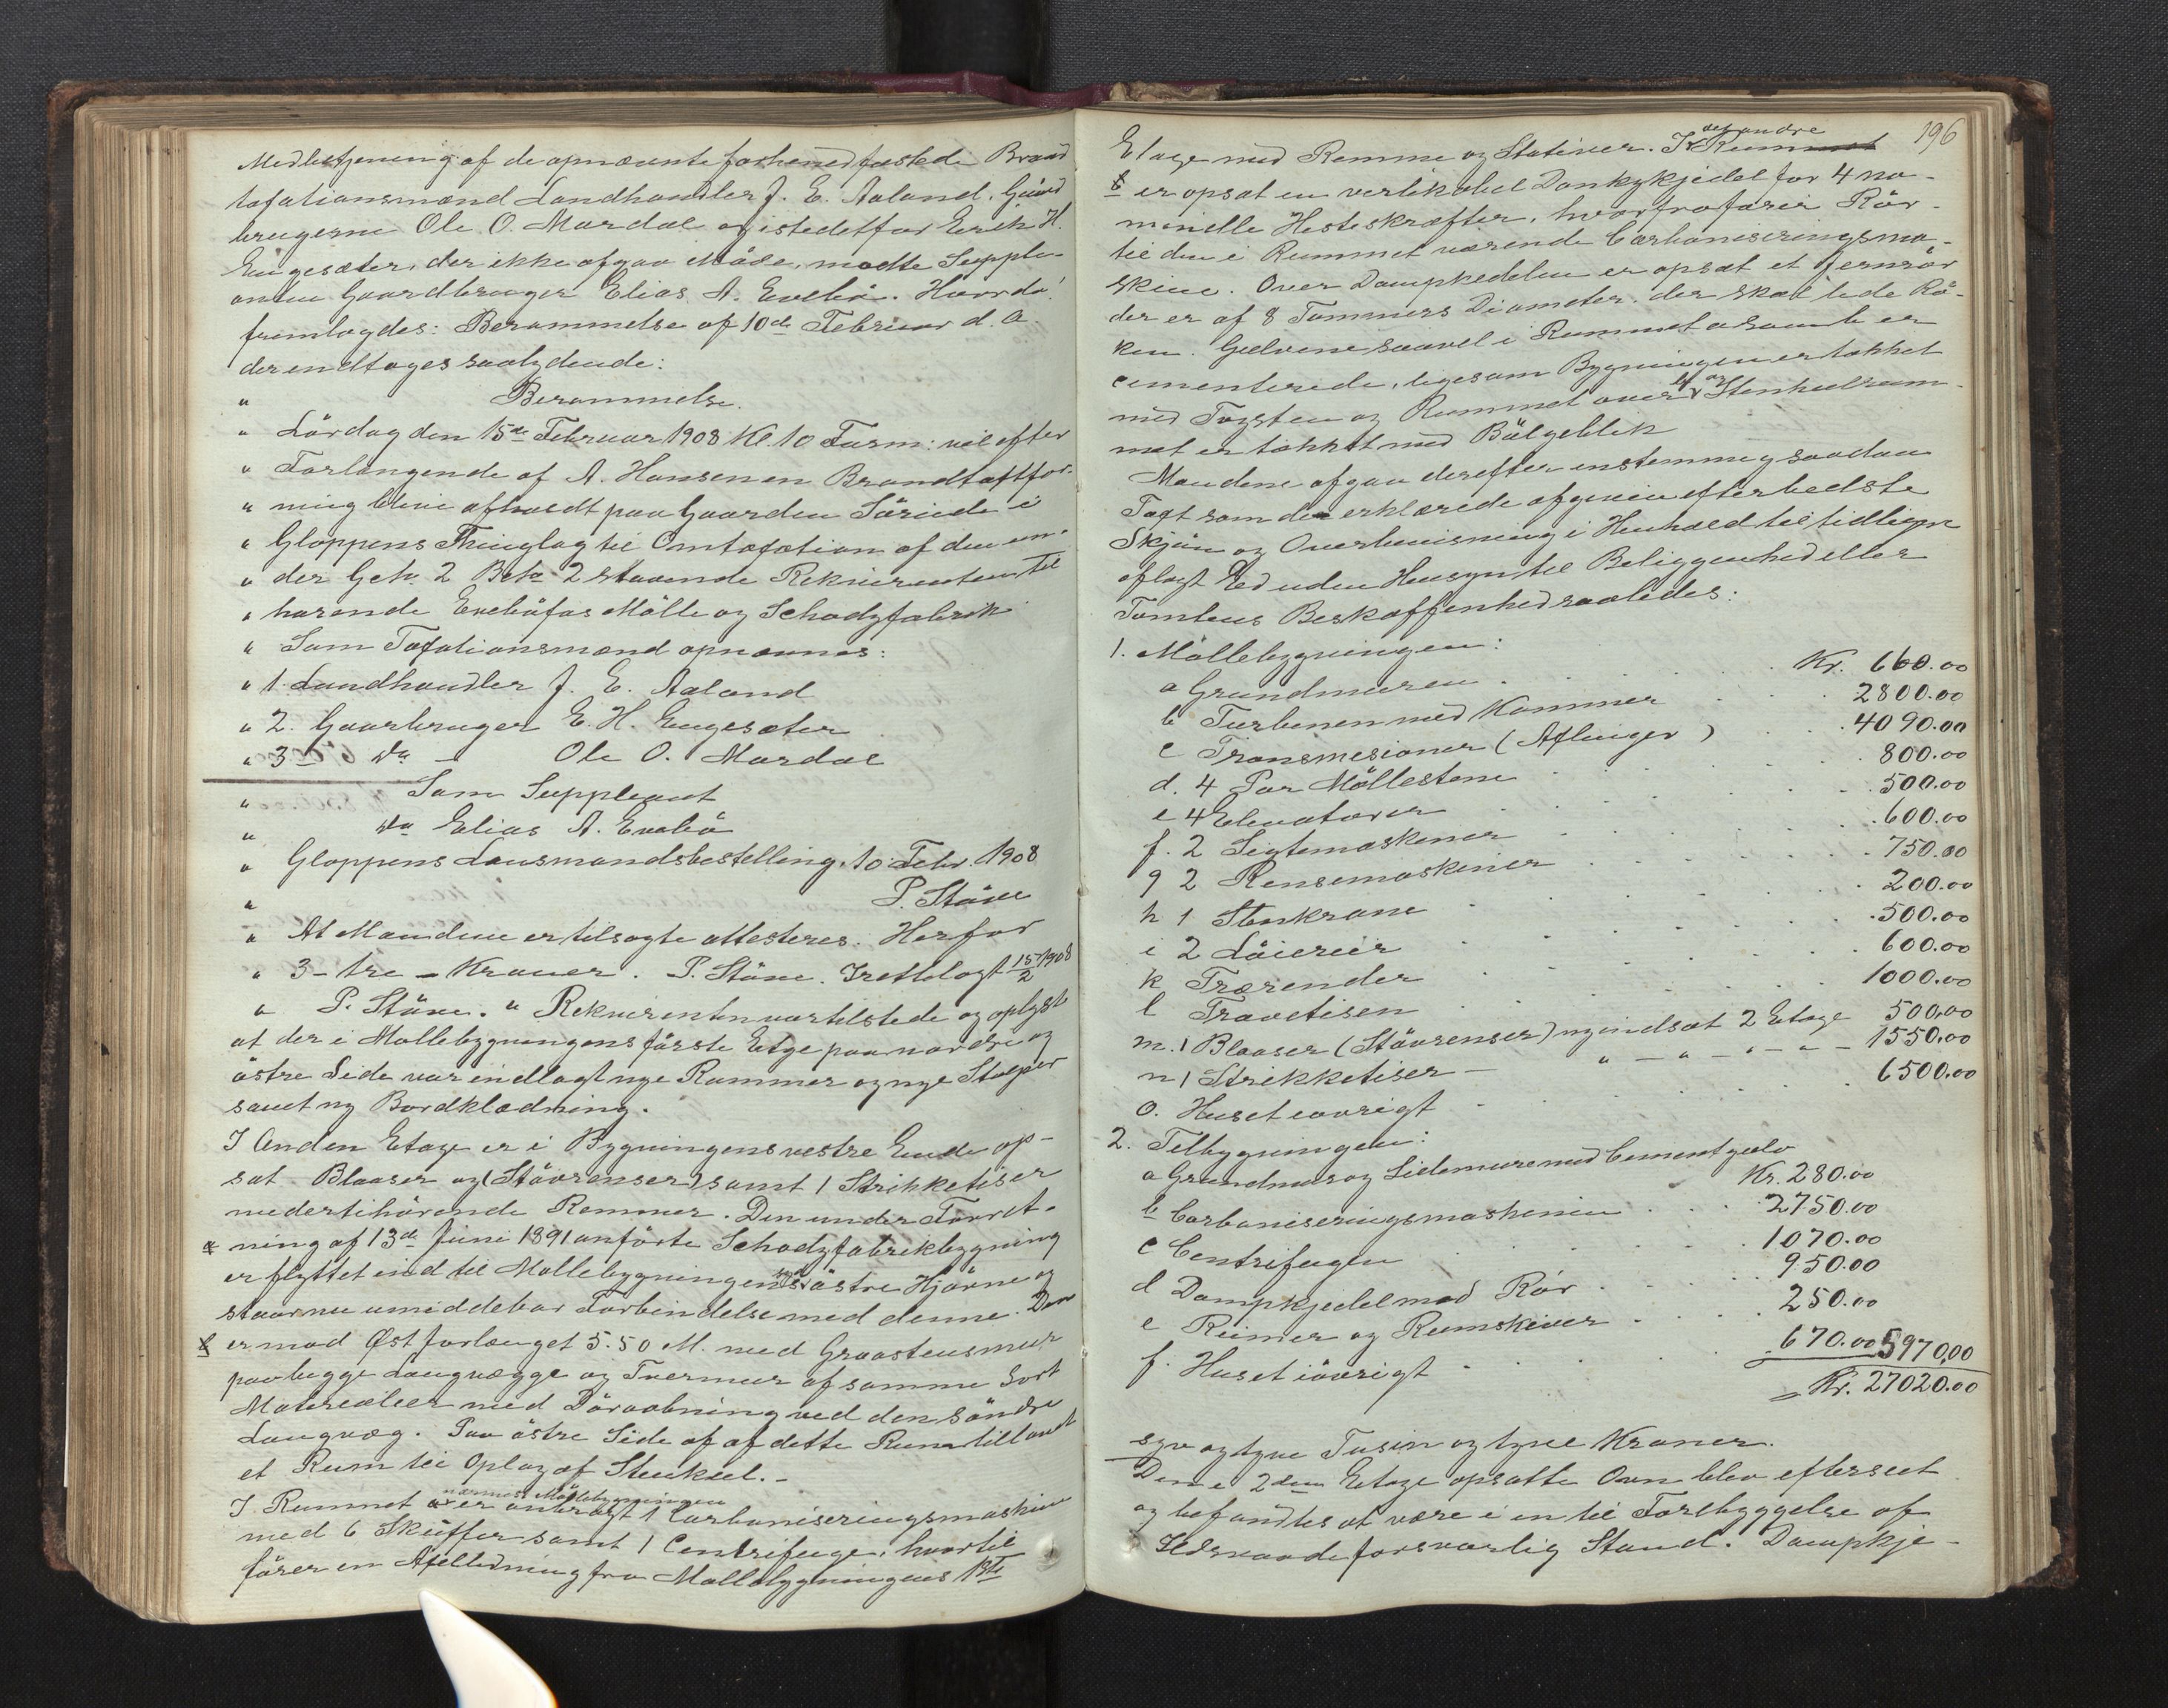 Medbetjening af de opnævnte forhenværende Brand
taxationsmænd Landhandler J. E. Aaland, Gaard
brugerne Ole O. Mardal og istedetfor Erik H.
Eugesæter, der ikke afgav Møde, mødte Supple-
anten Gaardbruger Elias A. Evebø. Hvorda
fremlagdes: Berammelse af 10de Februar d. A.
der indtages saalydende:
" Berammelse.
" Lördag den 15de Februar 1908 Kl. 10 Form: vil efter
" Forlangende af A. Hansen en Brandtaxtfor-
" ning blive afholdt paa Gaarden Söriede i
" Gloppens Thinglag til Omtaxation af den un-
" der Geh. 2 Beh 2 staaende Rekvirenten til
" hørende Evebøfos Mölle og Schodyfabrik
" Som Taxationsmænd opnævnes:
" 1. Landhandler J. E. Aaland
" 2. Gaarbruger E. H. Eugesæter
" 3 - Do - Ole O. Mardal
" Som Suppleant
" do Elias A. Evebø
" Gloppens Lensmandsbestelling, 10 Febr. 1908
" P. Støve
" At Mændene er tilsagte attesteres. Herfor
" 3 - tre - Kroner. P. Støve. Iretlelagt 15/2 1908
" P. Støve. " Rekvirenten var tilstede og oplyst
at der i Møllebygningens förste Etge paa nordre og
östre Side var indlagt nye Rammer og nye Stolper
samt ny Bordklædning.
I Anden Etage er i Bygningens vestre Ende op-
sat Blaaser og (Støvrenser) samt 1 Strikketiser
medertihörende Remmer. Den under Forret-
a ning af 13de Juni 1891 anförte Schodyfabrikbygning
er flyttet ind til Møllebygningens syd östre Hjørne og
staar nu umiddebar Forbindelse med denne. Den
b er mod Øst forlænget 5.50 M. med Graastensmur
paa begge Langvægge og Tvermur af samme Sort
Materialier med Döraabning ved den söndre
Langvæg. Paa östre Side af af dette Rum er tillavet
et Rum til Oplag af Stenkul. -
I Rummet a nærmest Möllebygningen er anbragt 1 Carboniseringsmaskine
med 6 Skuffer samt 1 Centrifuge, hvortil
förer en Axelledning fra Møllebygningens 1ste
196
Etage med Remme og Stativer. I det andre Rummet
b er opsat en vertikalel Dankykjedel for 4 no-
minelle Hesteskræfter, hvorfra förer Rör
til den i Rummet værende Carboniseringsma-
skine. Over Dampkedelen er opsat et Jernrör
der er af 8 Tommers Diameter. der skal lede Rö-
ken. Gulvene saavel i Rummet a som b er
cementerede, ligesom Bygningen er tækket
med Tagsten og Rummet over b og Stenkulrum-
met er tækket med Bölgeblik
Mændene afgav derefter enstemmig saadan
Taxt som de erklærede afgiven efter bedste
Skjön og Overbevisning i Henhold til tidligere
aflagt Ed uden Hensyn til Beliggenhed eller
Tomtens Beskaffenhed saaledes:
1. Möllebygningen:
a Grundmuren . Kr. 660.00
b Turbinen med Kammer . 2800.00
c Transmesioner (Axlinger) . 4090.00
d. 4 Par Möllestene . 800.00
e 4 Elevatorer . 500.00
f. 2 Sigtemaskiner . 600.00
g 2 Rensemaskiner . 750.00
h 1 Stenkrane . 200.00
i 2 Løierier . 500.00
k Trærender . 600.00
l Travetisen . 1000.00
m. 1 Blaaser (Støvrenser) ny indsat 2 Etage 500,00
n 1 Strikketiser - " - " - " - " - 1550.00
o. Huset iøvrigt . 6500.00
2. Tilbygningen:
a Grundmur og Sidemure med Cementgulv Kr. 280.00
b Carboniseringsmaskinen . 2750.00
c Centrifugen . 1070.00
d Dampkjedel med Rör . 950.00
e Reimer og Remskiver . 250.00
f. Huset iövrigt . 670.00 5970,00
= Kr. 27020.00
syv og tyve Tusin og tyve Kroner.
Den i 2den Etage opsatte Ovn blev efterseet
og befandtes at være i en til Forebyggelse af
Ildsvaade forsvarlig Stand. Dampkje-